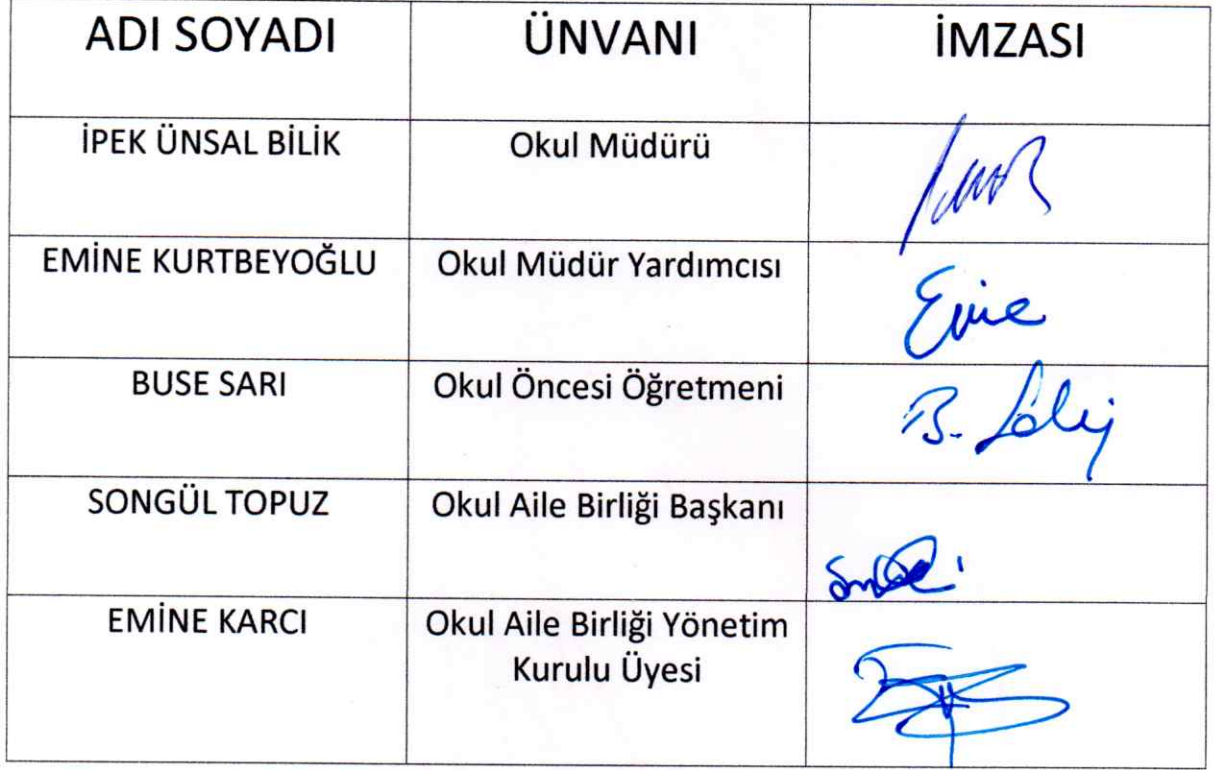 ADI SOYADI ÜNVANI İMZASI
İPEK ÜNSAL BİLİK Okul Müdürü
EMİNE KURTBEYOĞLU Okul Müdür Yardımcısı
Emine
BUSE SARI Okul Öncesi Öğretmeni
SONGÜL TOPUZ Okul Aile Birliği Başkanı
EMİNE KARCI Okul Aile Birliği Yönetim
Kurulu Üyesi